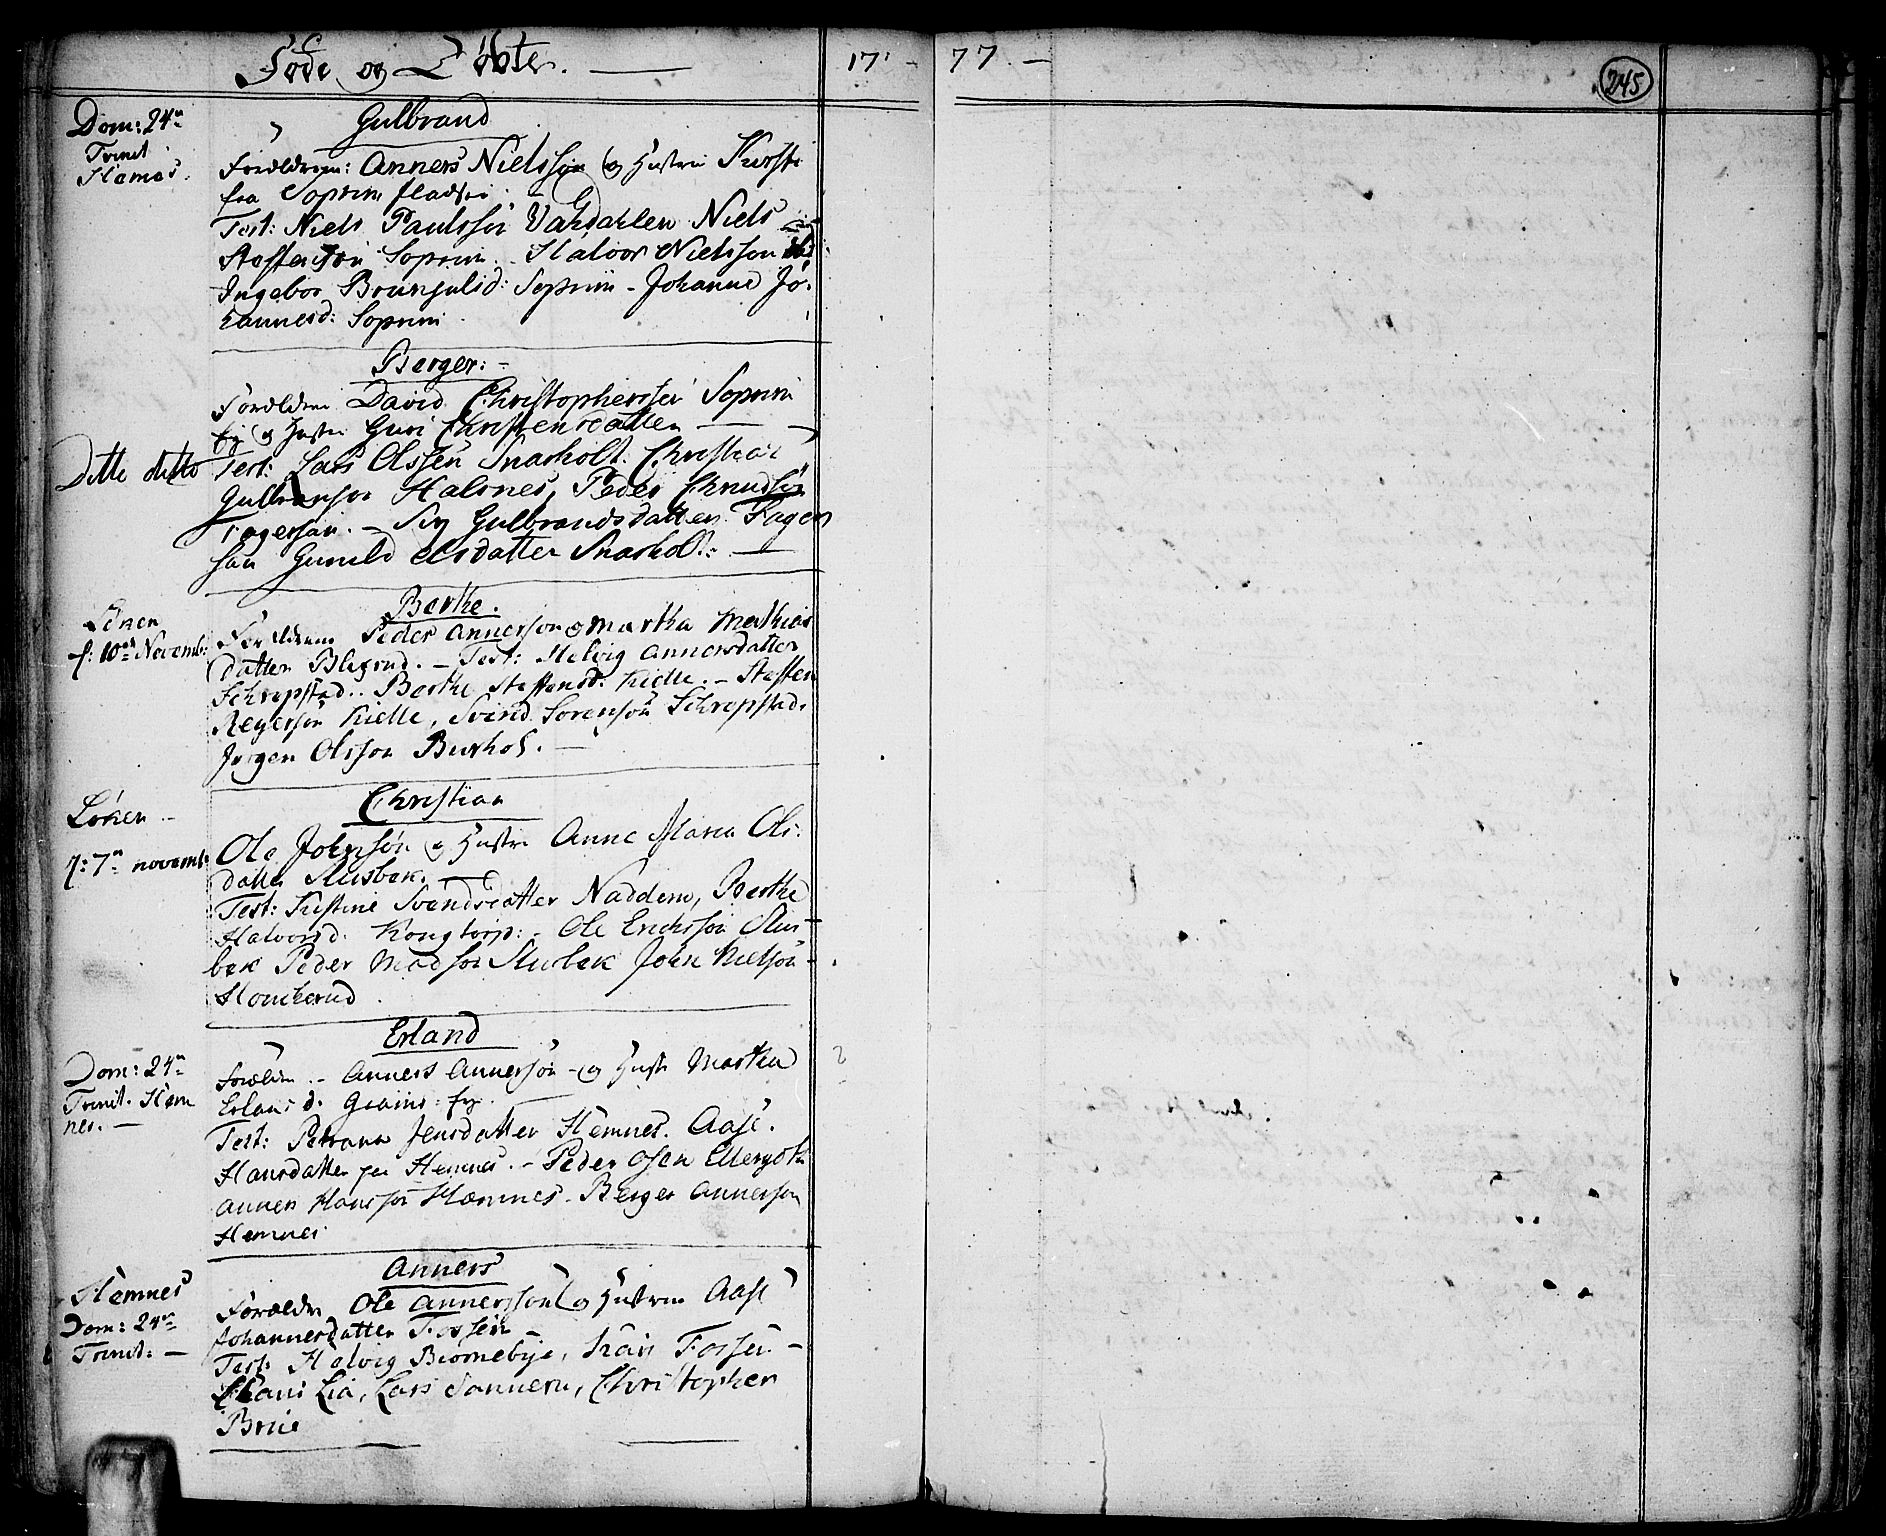 Föde og Döbte.
17
77.
245
Dom: 24de
Trinit
Gulbrand
Forældrene: Anners Nielssøn og Hustrue Kirsti
fra Soprim
Test: Niels Paulssön Niels
Steffensön Soprim. Halvor Nielsson
Ingebor Soprim - Johanne Jo-
hannesd: Soprim
Berger:
Forældrene David Christopherssen Soprim
og Hustru Guri Christensdatter
Ditto ditto
Test: Lars Olssen Snarholt. Christian
Gulbransön Halsnes, Peder Chrudsön
Fagersan. - Siv Gulbrandsdatter Fager
san Gunild Olsdatter Snarholt.
Löken
f: 10de Novemb:
Berthe.
Forældrene Peder Annersön o Martha Mathias
datter - Test: Helvig Annersdatter
Schrepstad. Berthe Steffensd: Kielle. - Steffen
Reyersön Kielle, Svend Sorensön Schrepstad.
Jørgen Olsson Burhol.
Löken
f: 7de novemb:
Christian
Ole Johnsön og Hustru Anne Maria Ols:
datter Slusbek.
Test: Kistine Svendsdatter Naddem, Berthe
Halvorsd. Kongtorp: - Ole Erichssön Slus
bek Peder Madsön Slusbek John Nielsön
Dom: 24de
Trinit. Hem
nes.
Erland
Forældre. - Anners Annersön - og Hustr Martha
Erlansd.
Test: Jensdatter Hemnes. Aase
Hansdatter Hemnes. - Peder Osen
Anners Hanssön Hæmnes. Berger Annersön
Hemnes
Hemnes
Dom: 24de
Trinit:
Anners
Forældre Ole Annerssön og Hustrue Aase
Johannesdatter Fossen
Test: Helvig Biörnebye, Fossen -
Hans Lia, Lars Sannern, Christopher
Brue